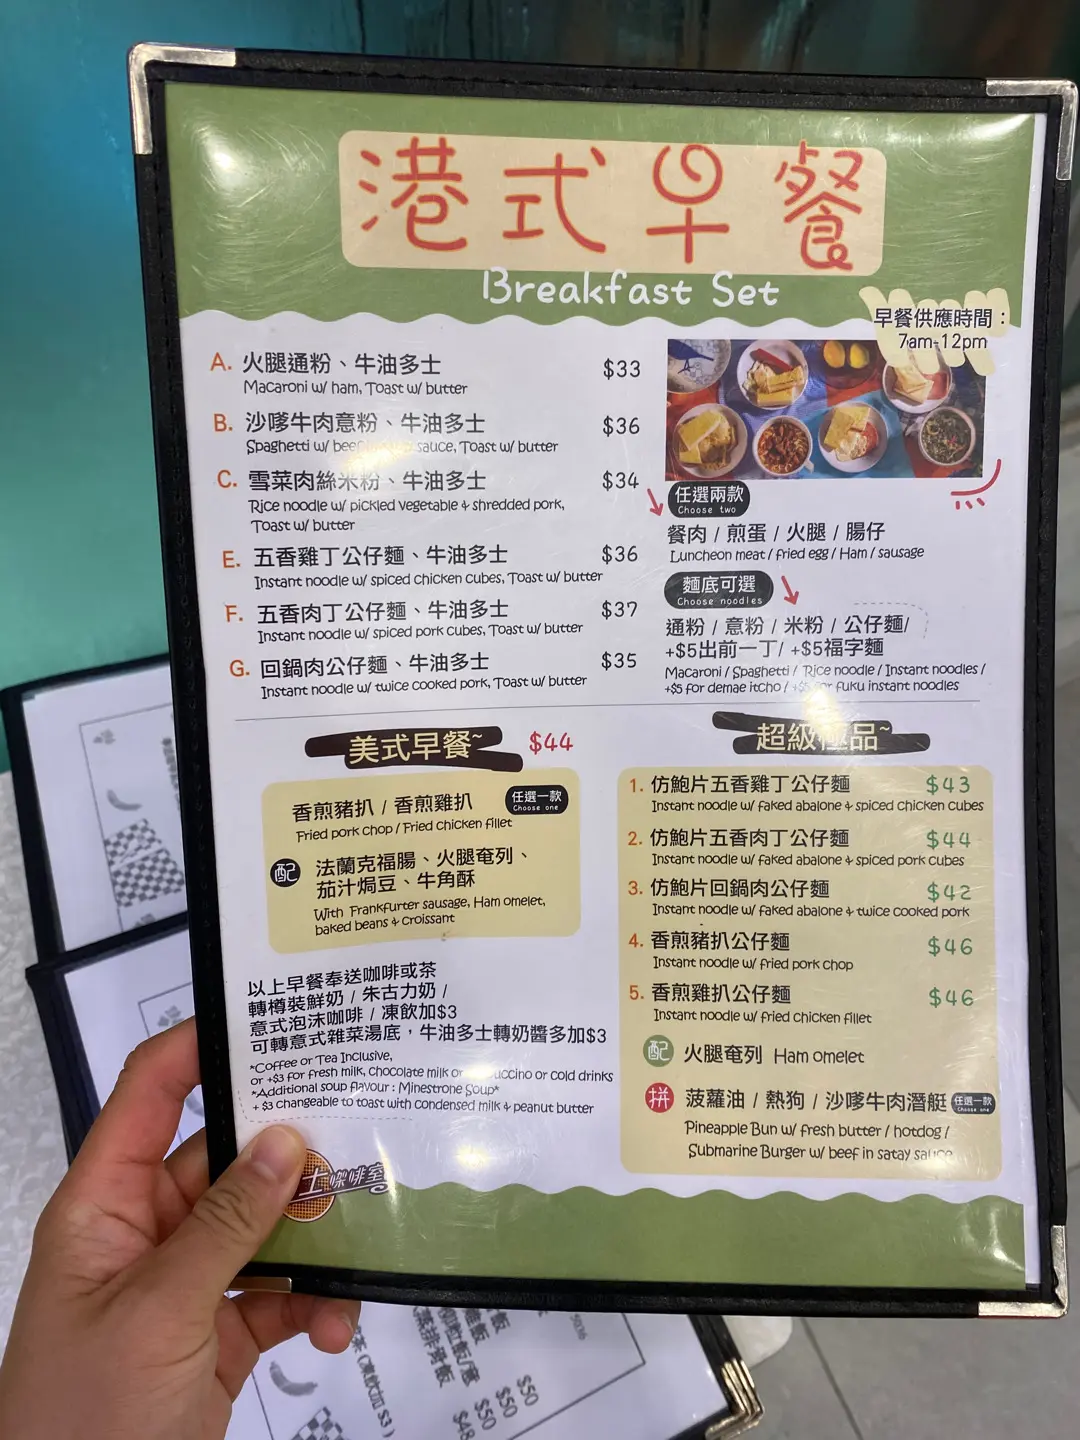 港式早餐
Breakfast Set
早餐供應時間：
7am-12pm
A. 火腿通粉、牛油多士 $33
Macaroni w/ ham, Toast w/ butter
B. 沙嗲牛肉意粉、牛油多士 $36
Spaghetti w/ beef sauce, Toast w/ butter
C. 雪菜肉絲米粉、牛油多士 $34
Rice noodle w/ pickled vegetable & shredded pork,
Toast w/ butter
E. 五香雞丁公仔麵、牛油多士 $36
Instant noodle w/ spiced chicken cubes, Toast w/ butter
F. 五香肉丁公仔麵、牛油多士 $37
Instant noodle w/ spiced pork cubes, Toast w/ butter
G. 回鍋肉公仔麵、牛油多士 $35
Instant noodle w/ twice cooked pork, Toast w/ butter
任選兩款
Choose two
餐肉 / 煎蛋 / 火腿 / 腸仔
Luncheon meat / fried egg / Ham / sausage
麵底可選
Choose noodles
通粉 / 意粉 / 米粉 / 公仔麵/
+$5出前一丁/ +$5福字麵
Macaroni / Spaghetti / Rice noodle / Instant noodles /
+$5 for demae itcho / +$5 for fuku instant noodles
美式早餐~ $44
香煎豬扒 / 香煎雞扒 任選一款
Choose one
Fried pork chop / Fried chicken fillet
配 法蘭克福腸、火腿奄列、
茄汁焗豆、牛角酥
With Frankfurter sausage, Ham omelet,
baked beans & Croissant
以上早餐奉送咖啡或茶
轉樽裝鮮奶 / 朱古力奶 /
意式泡沫咖啡 / 凍飲加$3
可轉意式雜菜湯底，牛油多士轉奶醬多加$3
*Coffee or Tea Inclusive,
or +$3 for fresh milk, chocolate milk or or cold drinks
*Additional soup flavour : Minestrone Soup*
+ $3 changeable to toast with condensed milk & peanut butter
士㗎啡室
超級極品~
1. 仿鮑片五香雞丁公仔麵 $43
Instant noodle w/ faked abalone & spiced chicken cubes
2. 仿鮑片五香肉丁公仔麵 $44
Instant noodle w/ faked abalone & spiced pork cubes
3. 仿鮑片回鍋肉公仔麵 $42
Instant noodle w/ faked abalone & twice cooked pork
4. 香煎豬扒公仔麵 $46
Instant noodle w/ fried pork chop
5. 香煎雞扒公仔麵 $46
Instant noodle w/ fried chicken fillet
配 火腿奄列 Ham omelet
拼 菠蘿油 / 熱狗 / 沙嗲牛肉潛艇 任選一款
Choose one
Pineapple Bun w/ fresh butter / hotdog /
Submarine Burger w/ beef in satay sauce
$50
$50
$48